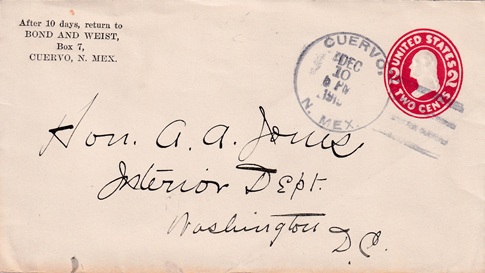 After 10 days, return to
BOND AND WEIST,
Box 7,
CUERVO, N. MEX.
CUERVO,
DEC
10
PM
N. MEX.
UNITED STATES
2 2
TWO CENTS
Hon. A. A. Jones
Interior Dept.
Washington
D.C.